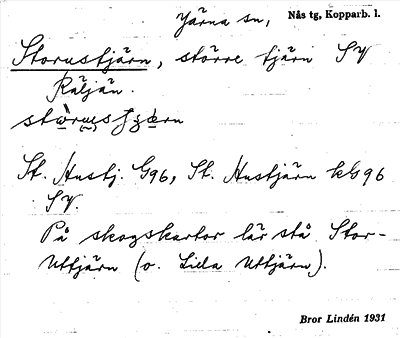 Järna sn, Nås tg, Kopparb. l.
Storustjärn, större tjärn SV
Räljän.
St. Hustj. G96, St. Hustjärn kbG96
SV.
På skogskartor lär stå Stor-
Uttjärn (o. Lilla Uttjärn).
Bror Lindén 1931